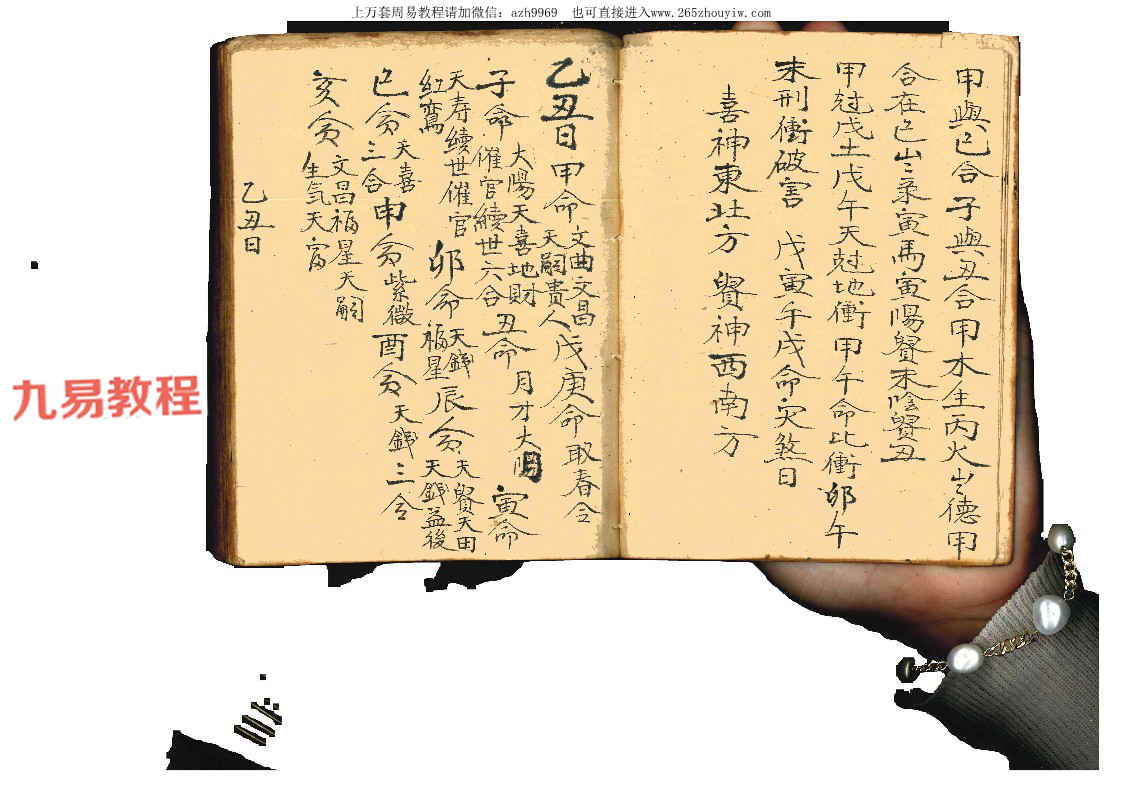 上万套周易教程请加微信：azh9969　也可直接进入www.265zhouyiw.com
甲與己合子與丑合甲木生丙火岁德甲
合在己岁柔寅馬寅陽貴未陰貴丑
甲尅戊土戊午天尅地衝甲午命比衝卯午
未刑衝破害　戊寅午戌命灾煞日
喜神東北方　貴神西南方
乙丑日甲命文曲文昌天嗣貴人戊庚命取春令
子命太陽天喜地財催官續世六合丑命月才太陽寅命
天寿續世催官紅鸞卯命天錢福星辰命天貴天田天錢益後
巳命天喜三合申命紫微酉命天錢三合
亥命文昌福星天嗣生气天富
乙丑日
九易教程